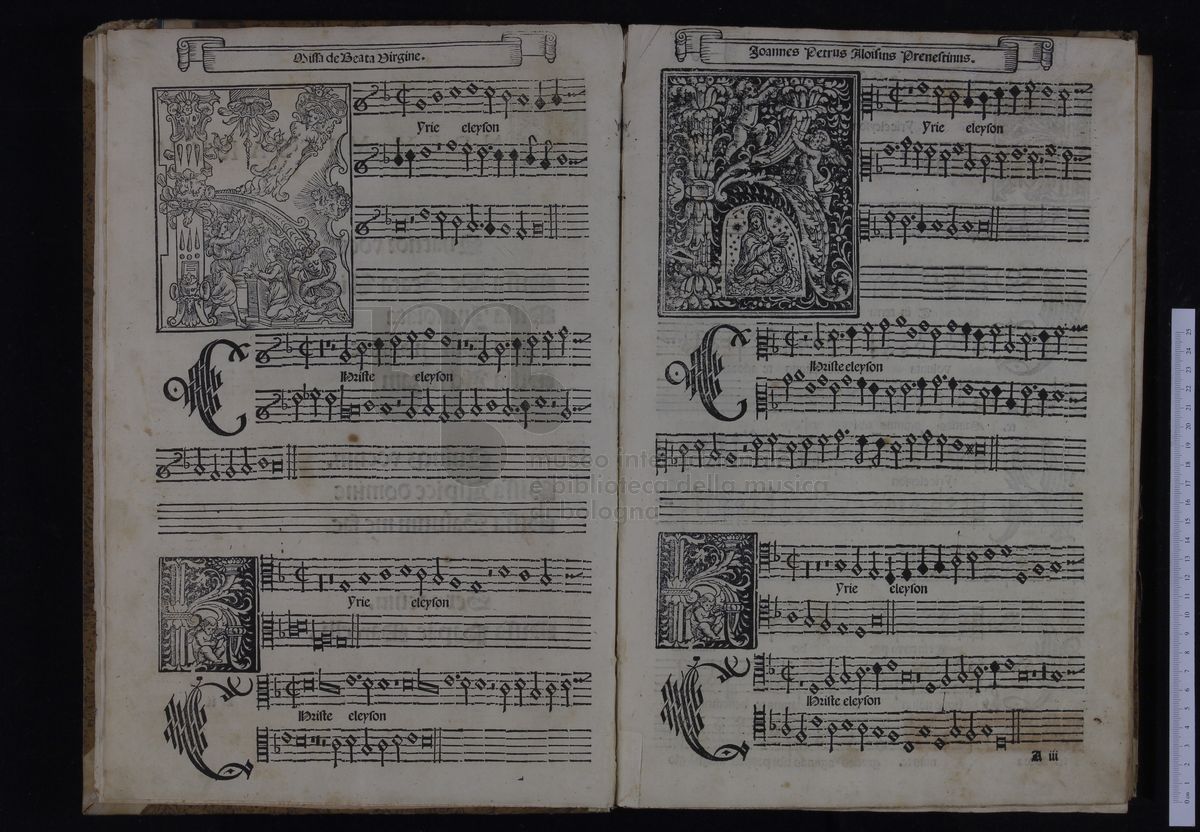 Missa de Beata Virgine.
yrie eleyson
hriste eleyson
yrie eleyson
hriste eleyson
Joannes Petrus Aloisius Prenestinus.
yrie eleyson
hriste eleyson
yrie eleyson
hriste eleyson
A iii
museo inte
e biblioteca della musica
di bologna